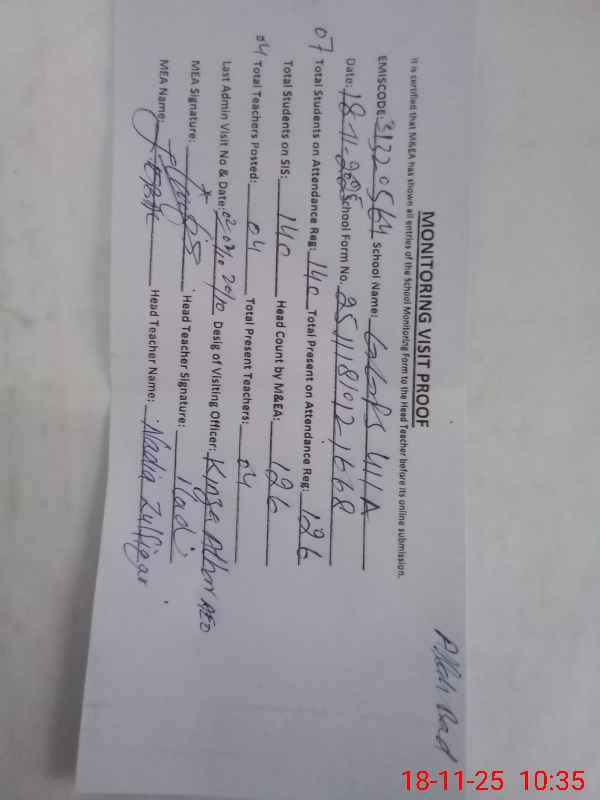 MONITORING VISIT PROOF
It is certified that M&EA has shown all entries of the School Monitoring Form to the Head Teacher before its online submission.
EMISCODE: 31320564 School Name: 411A
Date: 18-11-2025 School Form No. 2511181012-1668
07 Total Students on Attendance Reg: 140 Total Present on Attendance Reg: 126
Total Students on SIS: 140 Head Count by M&EA: 126
04 Total Teachers Posted: 04 Total Present Teachers: 04
Last Admin Visit No & Date: 02 Desig of Visiting Officer: Kinza AEO
MEA Signature: Head Teacher Signature: Nadi
MEA Name: Head Teacher Name: Nadia Zulfiqar
18-11-25 10:35